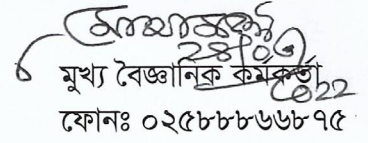 28/03
2022
মুখ্য বৈজ্ঞানিক কর্মকর্তা
ফোনঃ ০২৫৮৮৮৬৬৮৭৫